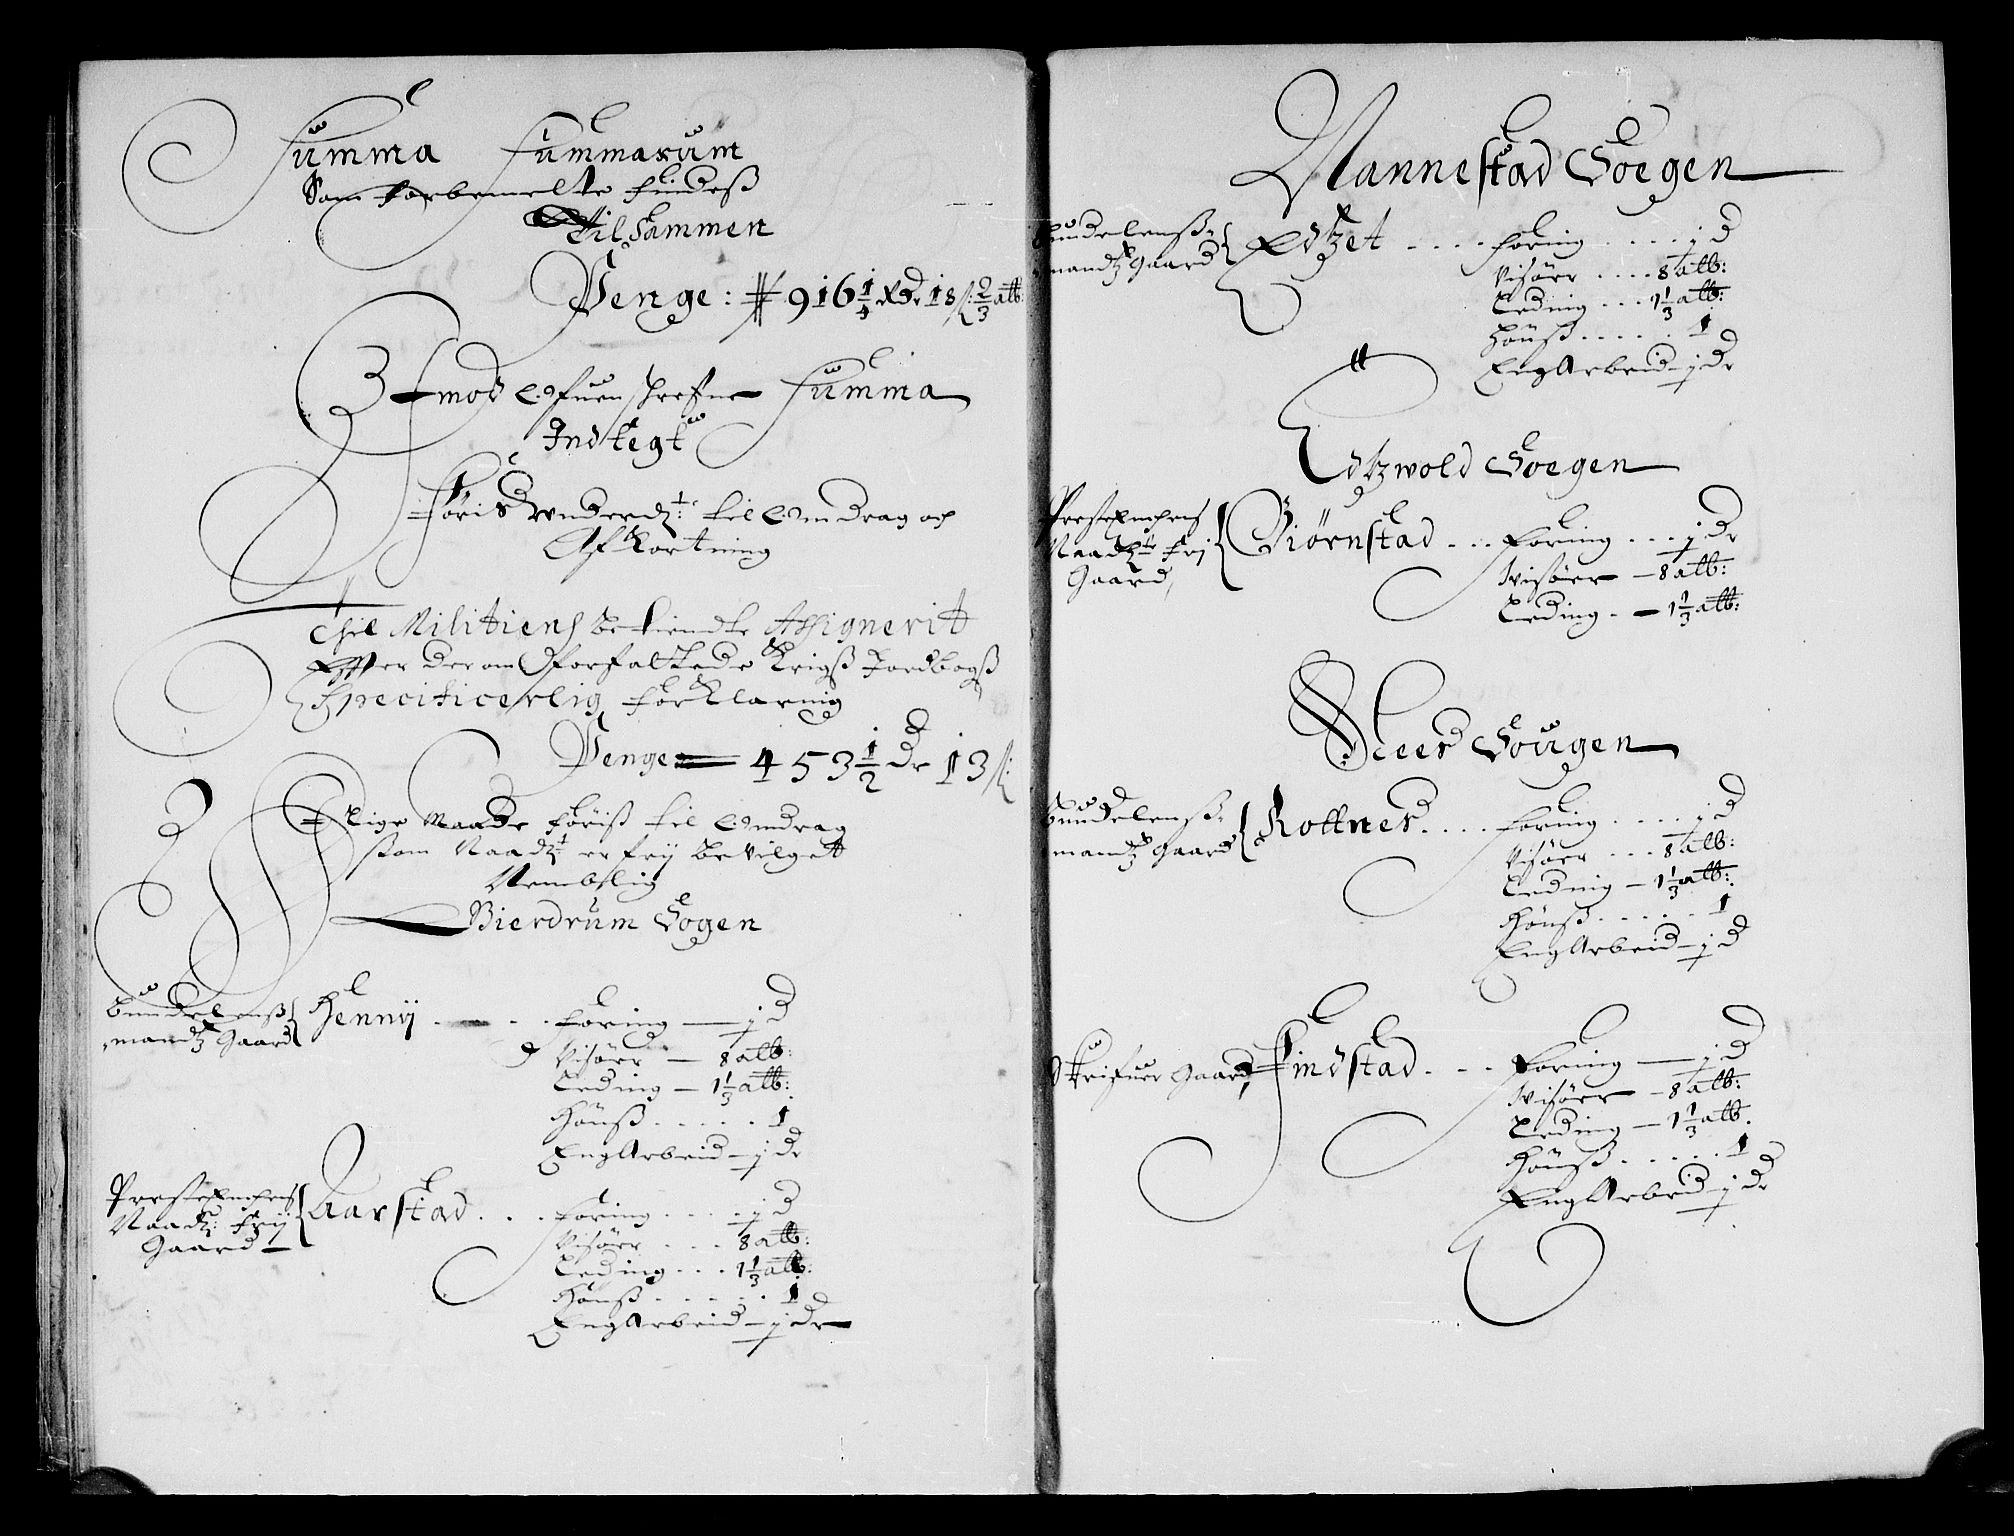 Summa Summarum
Som forbemelte findeß
Til Sammen
Penge: # 916 1/4 Rdr 18 ß: 2/3 alb:
Imod Ofuenschrefne Summa
Indtegt
Föris wnderdt: til Omdrag och
Afkortning
Thil Militiens betiendte Assignerit
Effter der om forfattede Krigß Jordbogß
Specificerlig forklaring
Penge 453 1/2 dr 13 ß:
I lige Maade föriß til Omdrag
som Naadt: er frij bevilget
Nemblig
Bierdrum Sogen
Bundelenß-
mandtz Gaard
Hennij . . . . foring — j d
Visöer — 8 alb:
Leding — 1 1/3 alb:
Hönß . . . . . 1
EngArbeid — j dr
Prestenchens
Naadt: frij
Gaard
Aarstad . . . foring . . . . j d
Visöer . . . 8 alb:
Leding . . . 1 1/3 alb:
Hönß . . . . . 1
EngArbeid — j dr
Mannestad Soegen
Bundelenß-
mandtz Gaard
Edtzet . . . . foring . . . . j d
Visöer . . . . 8 alb:
Leding . . . 1 1/3 alb:
Hönß . . . . . 1
EngArbeid — j dr
Edtzwold Soegen
Prestenchens
Naadtz frij
Gaard,
Biörnstad . . . foring . . . j dr
Visöer — 8 alb:
Leding . — 1 1/3 alb:
Skees Sougen
Bundelenß-
mandtz Gaard
Rottnes . . . . foring . . . . j d
Visöer . . . 8 alb:
Leding — 1 1/3 alb:
Hönß . . . . . 1
EngArbeid — j d
Skrifuer Gaard,
Findstad . . . foring — j d
Visöer — 8 alb:
Leding — 1 1/3 alb.
Hönß . . . . . 1
EngArbeid j dr